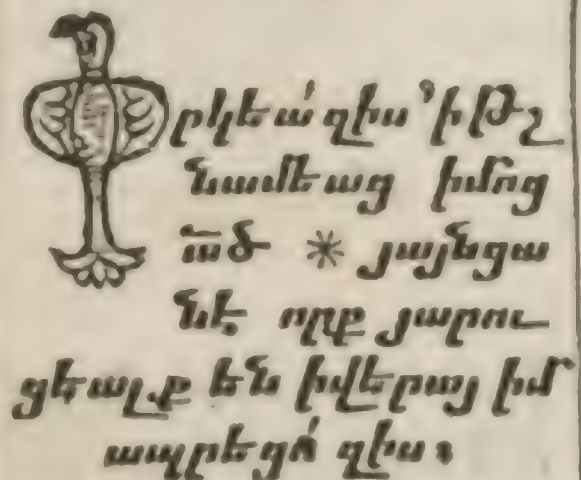 Փրկեա՛ զիս ՚ի թշ
նամեաց իմոց
ա՟ծ * յայնցա
նէ որք յարու
ցեալք են իվերայ իմ
ապրեցո՛ զիս։